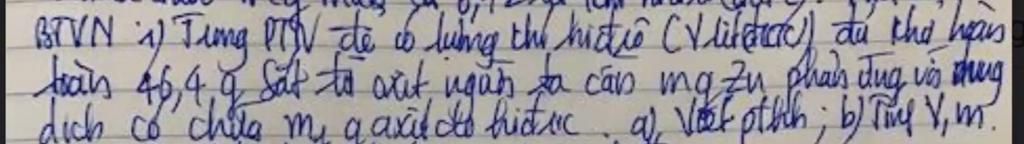 BTVN 1) Trong PTN để có lượng khí hiđrô (V lít đktc) đủ khử hoàn
toàn 46,4 g Sắt từ oxit người ta cần m g Zn phản ứng với dung
dịch có chứa m₁ g axit clo hiđric. a), Viết pthh; b) Tính V, m.